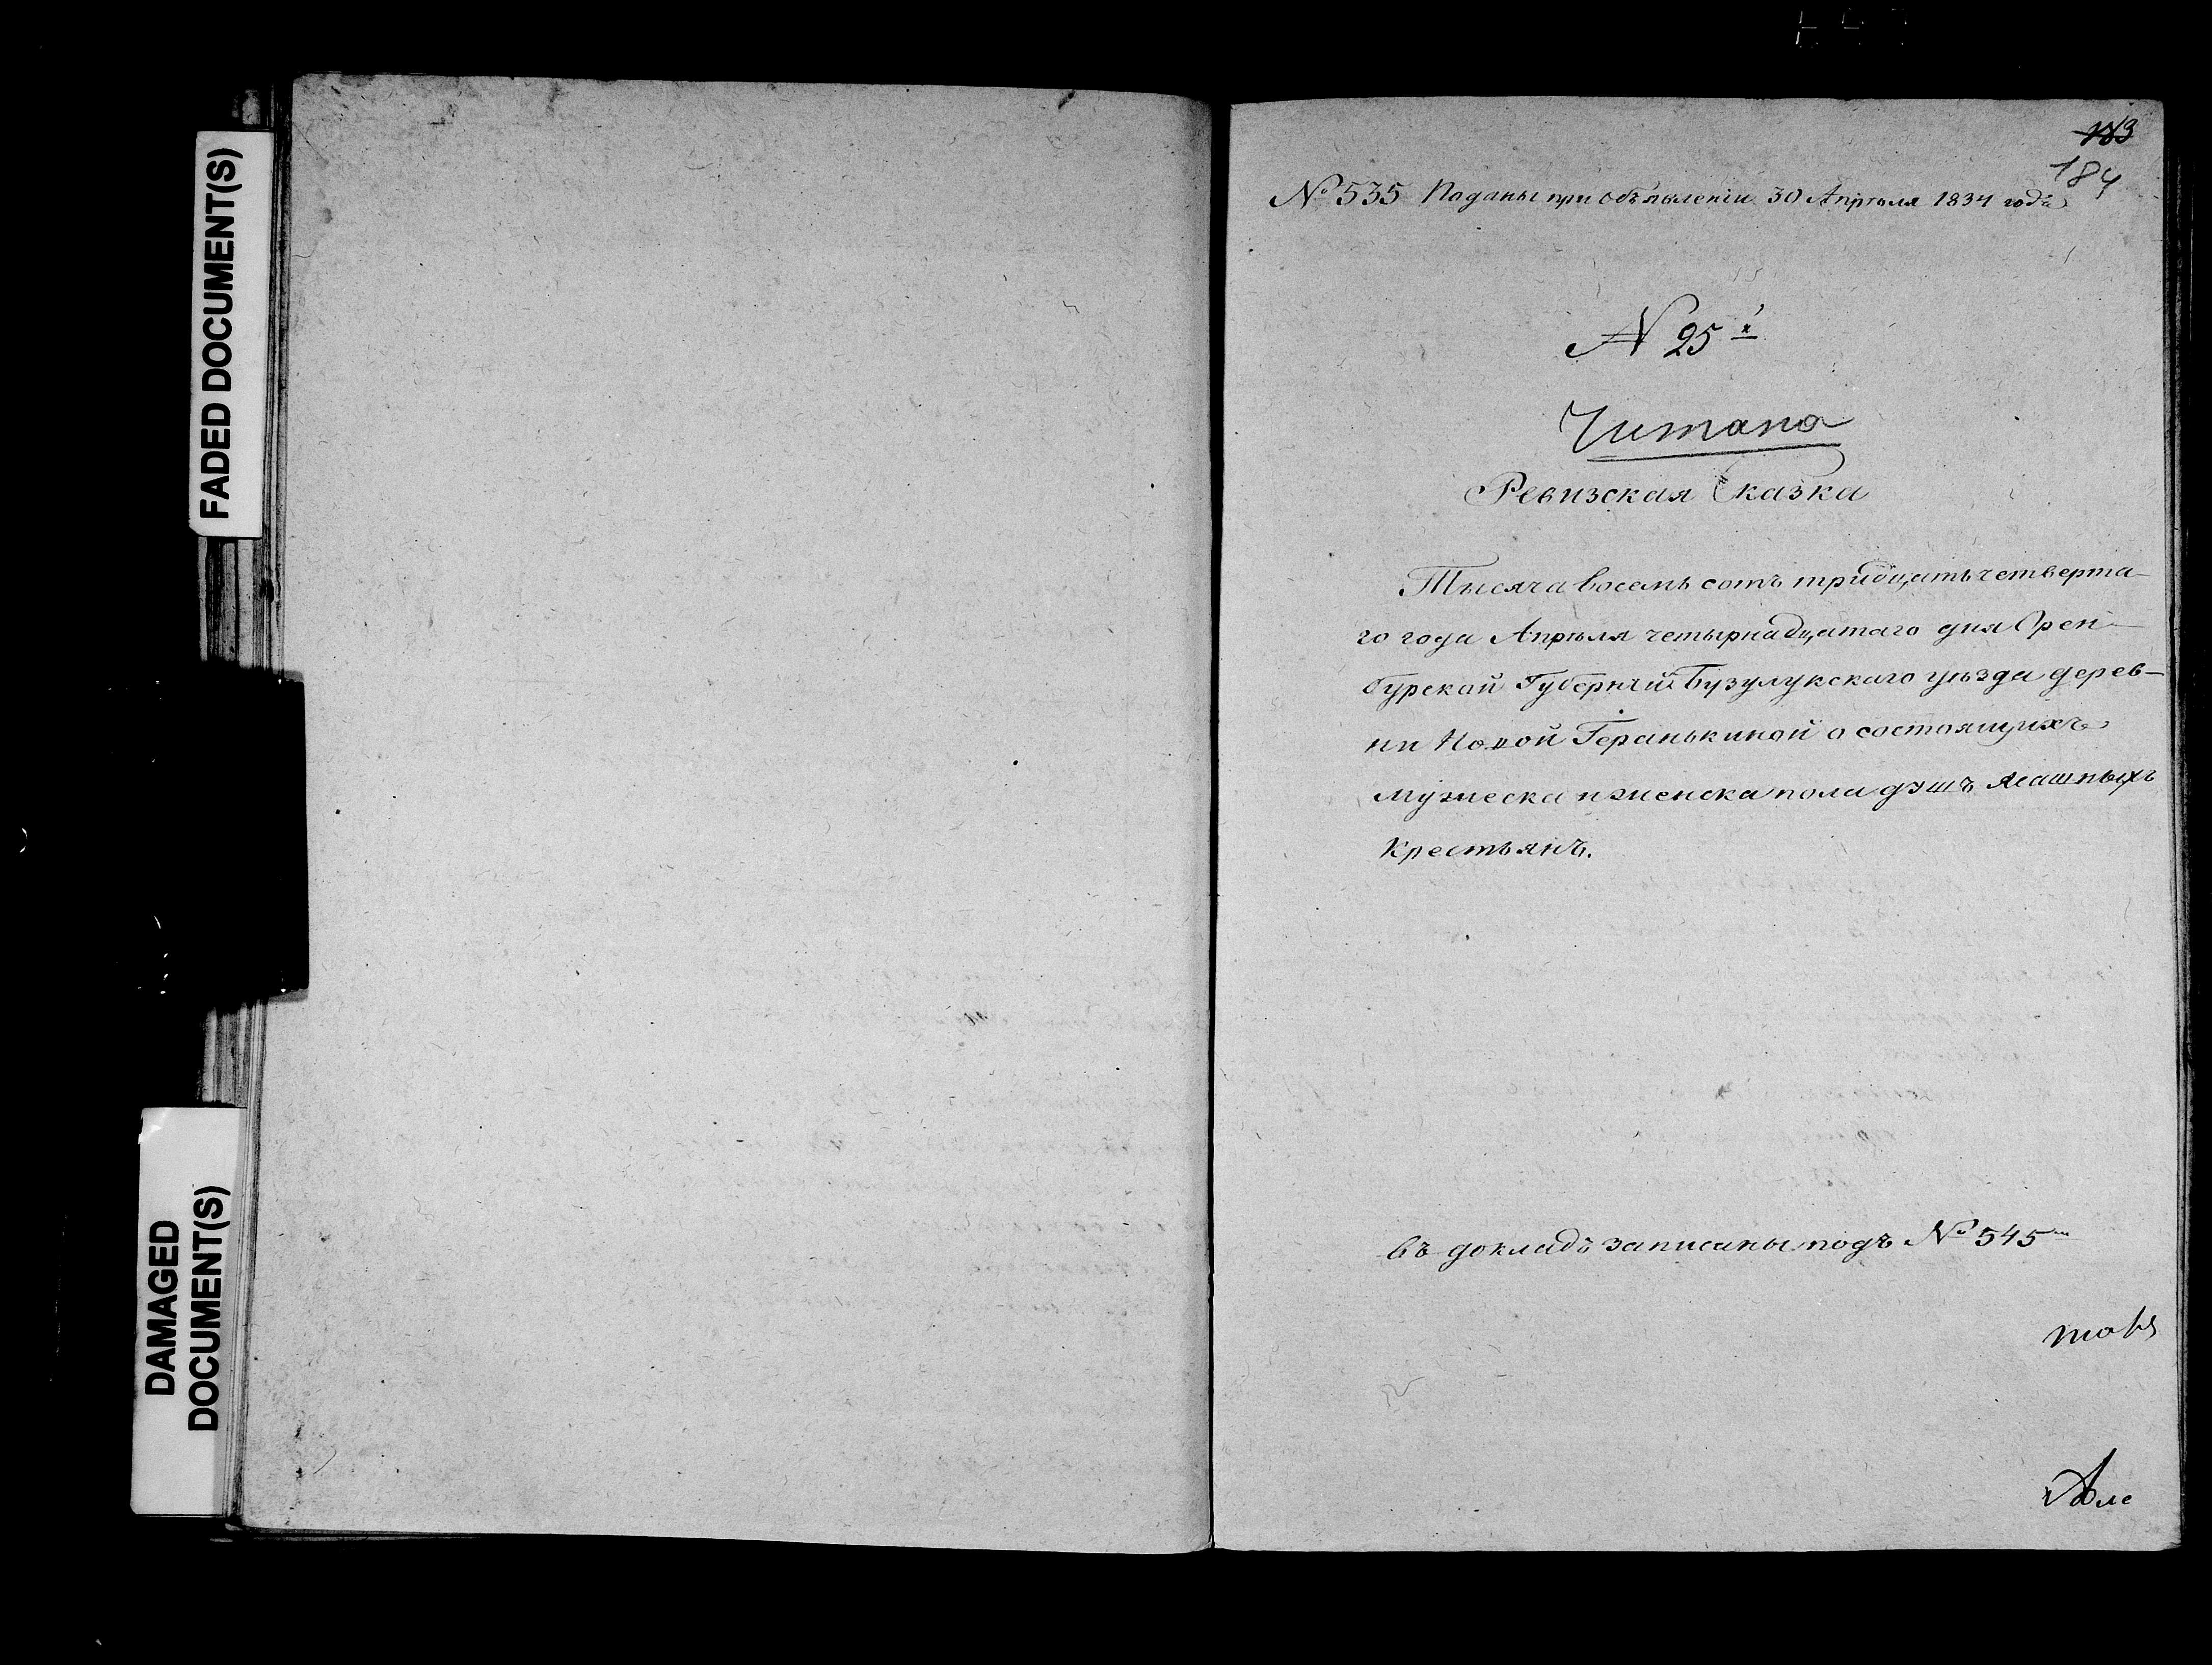 FADED DOCUMENT(S)
DAMAGED
DOCUMENT(S)
183
184
№ 535 Поданы при объявленіи 30 Апрѣля 1834 года
N 25
Читано
Ревизская Сказка
Тысяча восемь сотъ тридцать четверта-
го года Апрѣля четырнадцатаго дня Орен-
бурской Губерніи Бузулукскаго уѣзда дерев-
ни Новой Геранькиной о состоящихъ
мужеска и женска пола душъ ясашныхъ
Крестьянъ.
въ докладъ записаны подъ № 545
Але